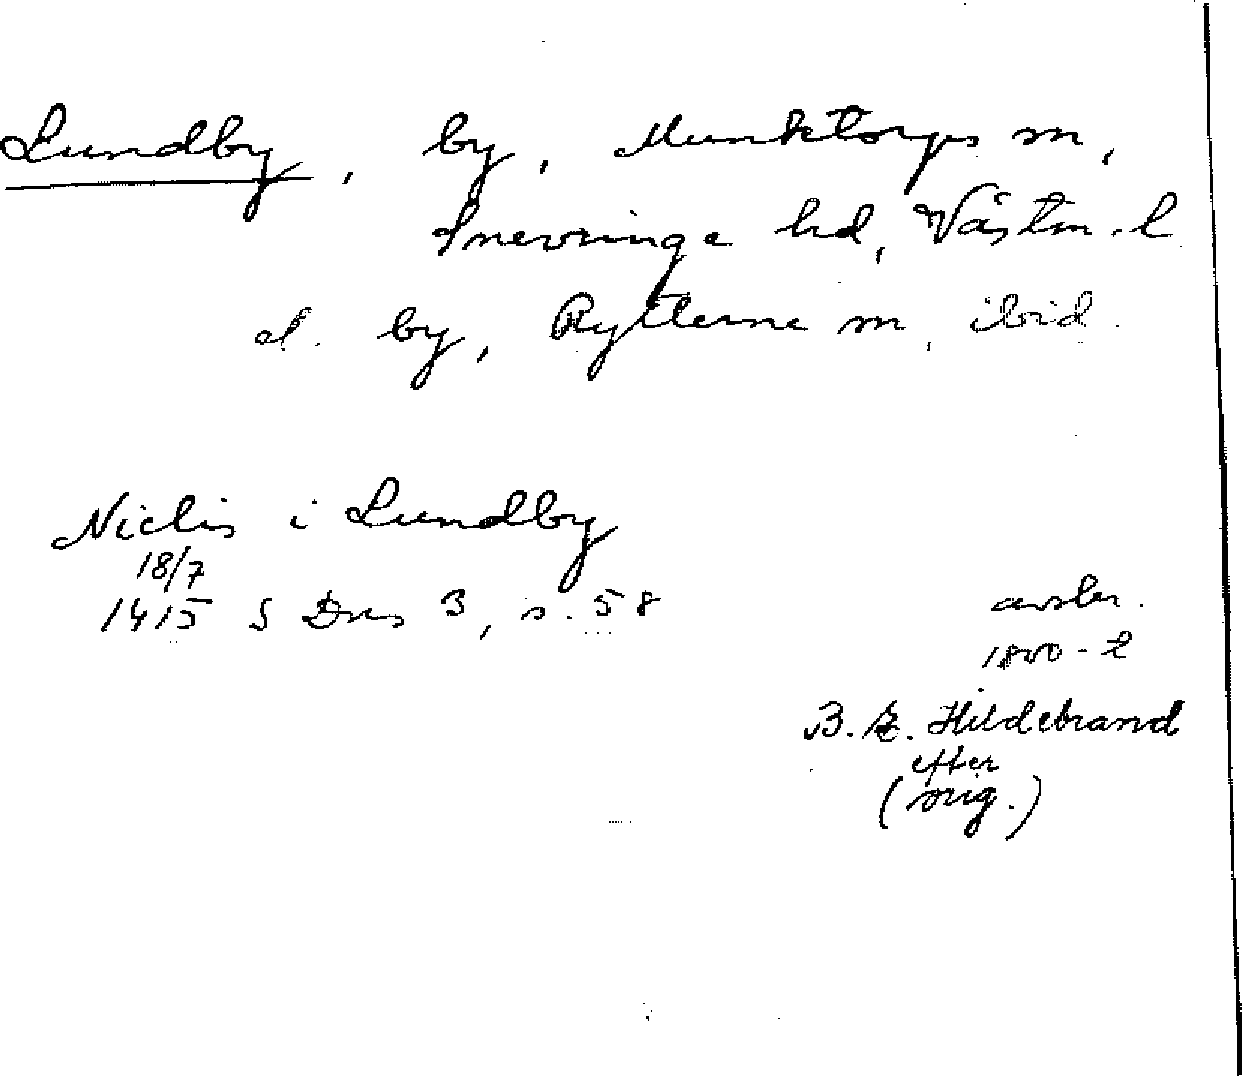 Lundby, by, Munktorps sn,
Snevringe hd, Västm. l
el. by, Rytterne sn, ibid.
Niclis i Lundby
18/7
1415 S Dns 3, s. 58
avskr.
1800-t
B. E. Hildebrand
efter
(orig.)